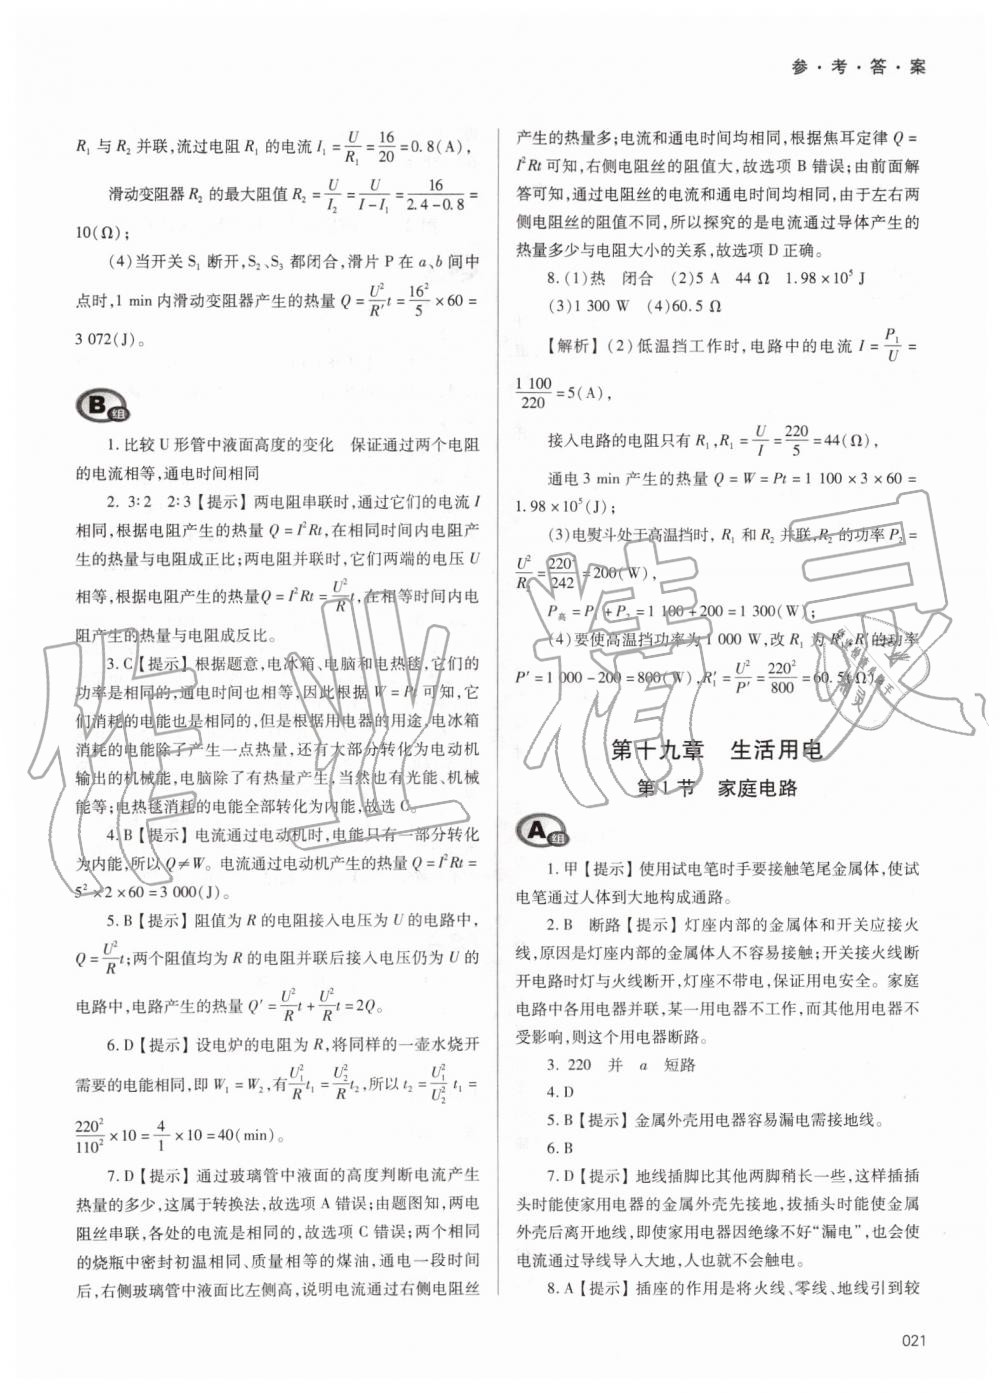 参·考·答·案
R₁ 与 R₂ 并联,流过电阻 R₁ 的电流 I₁ = U/R₁ = 16/20 = 0.8(A),
滑动变阻器 R₂ 的最大阻值 R₂ = U/I₂ = U/(I-I₁) = 16/(2.4-0.8) =
10(Ω);
(4)当开关 S₁ 断开,S₂、S₃ 都闭合,滑片 P 在 a、b 间中
点时,1 min 内滑动变阻器产生的热量 Q = U²/R′ t = 16²/5 × 60 =
3 072(J)。
B组
1. 比较 U 形管中液面高度的变化　保证通过两个电阻
的电流相等,通电时间相同
2. 3∶2　2∶3【提示】两电阻串联时,通过它们的电流 I
相同,根据电阻产生的热量 Q = I²Rt,在相同时间内电阻产
生的热量与电阻成正比;两电阻并联时,它们两端的电压 U
相等,根据电阻产生的热量Q = I²Rt = U²/R t,在相等时间内电
阻产生的热量与电阻成反比。
3. C【提示】根据题意,电冰箱、电脑和电热毯,它们的
功率是相同的,通电时间也相等,因此根据 W = Pt 可知,它
们消耗的电能也是相同的,但是根据用电器的用途,电冰箱
消耗的电能除了产生一点热量,还有大部分转化为电动机
输出的机械能,电脑除了有热量产生,当然也有光能、机械
能等;电热毯消耗的电能全部转化为内能,故选 C。
4. B【提示】电流通过电动机时,电能只有一部分转化
为内能,所以 Q≠W。电流通过电动机产生的热量 Q = I²Rt =
5² × 2 × 60 = 3 000(J)。
5. B【提示】阻值为 R 的电阻接入电压为 U 的电路中,
Q = U²/R t;两个阻值均为 R 的电阻并联后接入电压仍为 U 的
电路中,电路产生的热量 Q′ = U²/R t + U²/R t = 2Q。
6. D【提示】设电炉的电阻为 R,将同样的一壶水烧开
需要的电能相同,即 W₁ = W₂,有 U₁²/R t₁ = U₂²/R t₂,所以 t₂ = U₁²/U₂² t₁ =
220²/110² × 10 = 4/1 × 10 = 40(min)。
7. D【提示】通过玻璃管中液面的高度判断电流产生
热量的多少,这属于转换法,故选项 A 错误;由题图知,两电
阻丝串联,各处的电流是相同的,故选项 C 错误;两个相同
的烧瓶中密封初温相同、质量相等的煤油,通电一段时间
后,右侧玻璃管中液面比左侧高,说明电流通过右侧电阻丝
产生的热量多;电流和通电时间均相同,根据焦耳定律 Q =
I²Rt 可知,右侧电阻丝的阻值大,故选项 B 错误;由前面解
答可知,通过电阻丝的电流和通电时间均相同,由于左右两
侧电阻丝的阻值不同,所以探究的是电流通过导体产生的
热量多少与电阻大小的关系,故选项 D 正确。
8. (1)热　闭合　(2)5 A　44 Ω　1.98×10⁵ J
(3)1 300 W　(4)60.5 Ω
【解析】(2)低温挡工作时,电路中的电流 I = P₁/U =
1 100/220 = 5(A),
接入电路的电阻只有 R₁,R₁ = U/I = 220/5 = 44(Ω),
通电 3 min 产生的热量 Q = W = Pt = 1 100 × 3 × 60 =
1.98×10⁵(J);
(3)电熨斗处于高温挡时, R₁ 和 R₂ 并联,R₂ 的功率 P₂ =
U²/R₂ = 220²/242 = 200(W),
P高 = P₁ + P₂ = 1 100 + 200 = 1 300(W);
(4)要使高温挡功率为 1 000 W,改 R₁ 为 R₁′,R₁′的功率
P′ = 1 000 - 200 = 800(W),R₁′ = U²/P′ = 220²/800 = 60.5(Ω)。
第十九章　生活用电
第 1 节　家庭电路
A组
1. 甲【提示】使用试电笔时手要接触笔尾金属体,使试
电笔通过人体到大地构成通路。
2. B　断路【提示】灯座内部的金属体和开关应接火
线,原因是灯座内部的金属体人不容易接触;开关接火线断
开电路时灯与火线断开,灯座不带电,保证用电安全。家庭
电路中各用电器并联,某一用电器不工作,而其他用电器不
受影响,则这个用电器断路。
3. 220　并　a　短路
4. D
5. B【提示】金属外壳用电器容易漏电需接地线。
6. B
7. D【提示】地线插脚比其他两脚稍长一些,这样插插
头时能使家用电器的金属外壳先接地,拔插头时能使金属
外壳后离开地线,即使家用电器因绝缘不好“漏电”,也会使
电流通过导线导入大地,人也就不会触电。
8. A【提示】插座的作用是将火线、零线、地线引到较
021
作业精灵